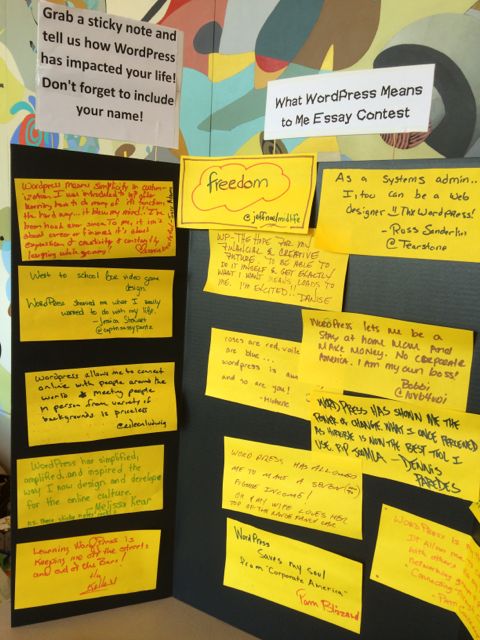 Grab a sticky note and
tell us how WordPress
has impacted your life!
Don't forget to include
your name!
What WordPress Means
to Me Essay Contest
Wordpress means simplicity in custom-
ization - I was introduced to WP after
learning how to do many of its functions
the hard way... it blew my mind. I've
been hooked ever since. To me, it isn't
about career or finances it's about
expression of creativity & constantly
learning while growing!
Went to school for video game
design.
WordPress showed me what I really
wanted to do with my life.
- Jessica Stewart
Wordpress allows me to connect
online with people around the
world & meeting people
in person from variety of
backgrounds is priceless
@eileenludwig
WordPress has simplified,
amplified, and inspired the
way I now design and develope
for the online culture.
Melissa Kear
Learning WordPress is
Keeping me off the streets
and out of the Bars!
Kelley
freedom
@jeffnedmdlife
WP - THE HOPE FOR MY
FINANCIAL & CREATIVE
FUTURE. TO BE ABLE TO
DO IT MYSELF & GET EXACTLY
WHAT I WANT MEANS LOADS TO
ME. I'M EXCITED!.. DANISE
roses are red, violets
are blue...
wordpress is awesome
and so are you!
WORD PRESS, HAS ALLOWED
ME TO MAKE A SEVEN
FIGURE INCOME!
OH & MY WIFE LOVES HER
WordPress
Saves my soul
From "Corporate America"
Pam Blizzard
As a systems admin..
I, too can be a web
designer Thx WordPress!
- Ross Sanderlin
@Tearstone
WORDPRESS lets me be a
Stay at home MOM AND
MAKE MONEY. No CORPORATE
AMERICA. I AM my own boss!
Bobbi
WORDPRESS HAS SHOWN ME THE
POWER OF CHANGE. WHAT I ONCE PERCEIVED
AS INFERIOR IS NOW THE BEST TOOL I
USE. RIP JOOMLA - DENNIS
PAREDES
WORDPRESS is
It Allows me
with others
networking
Connecting